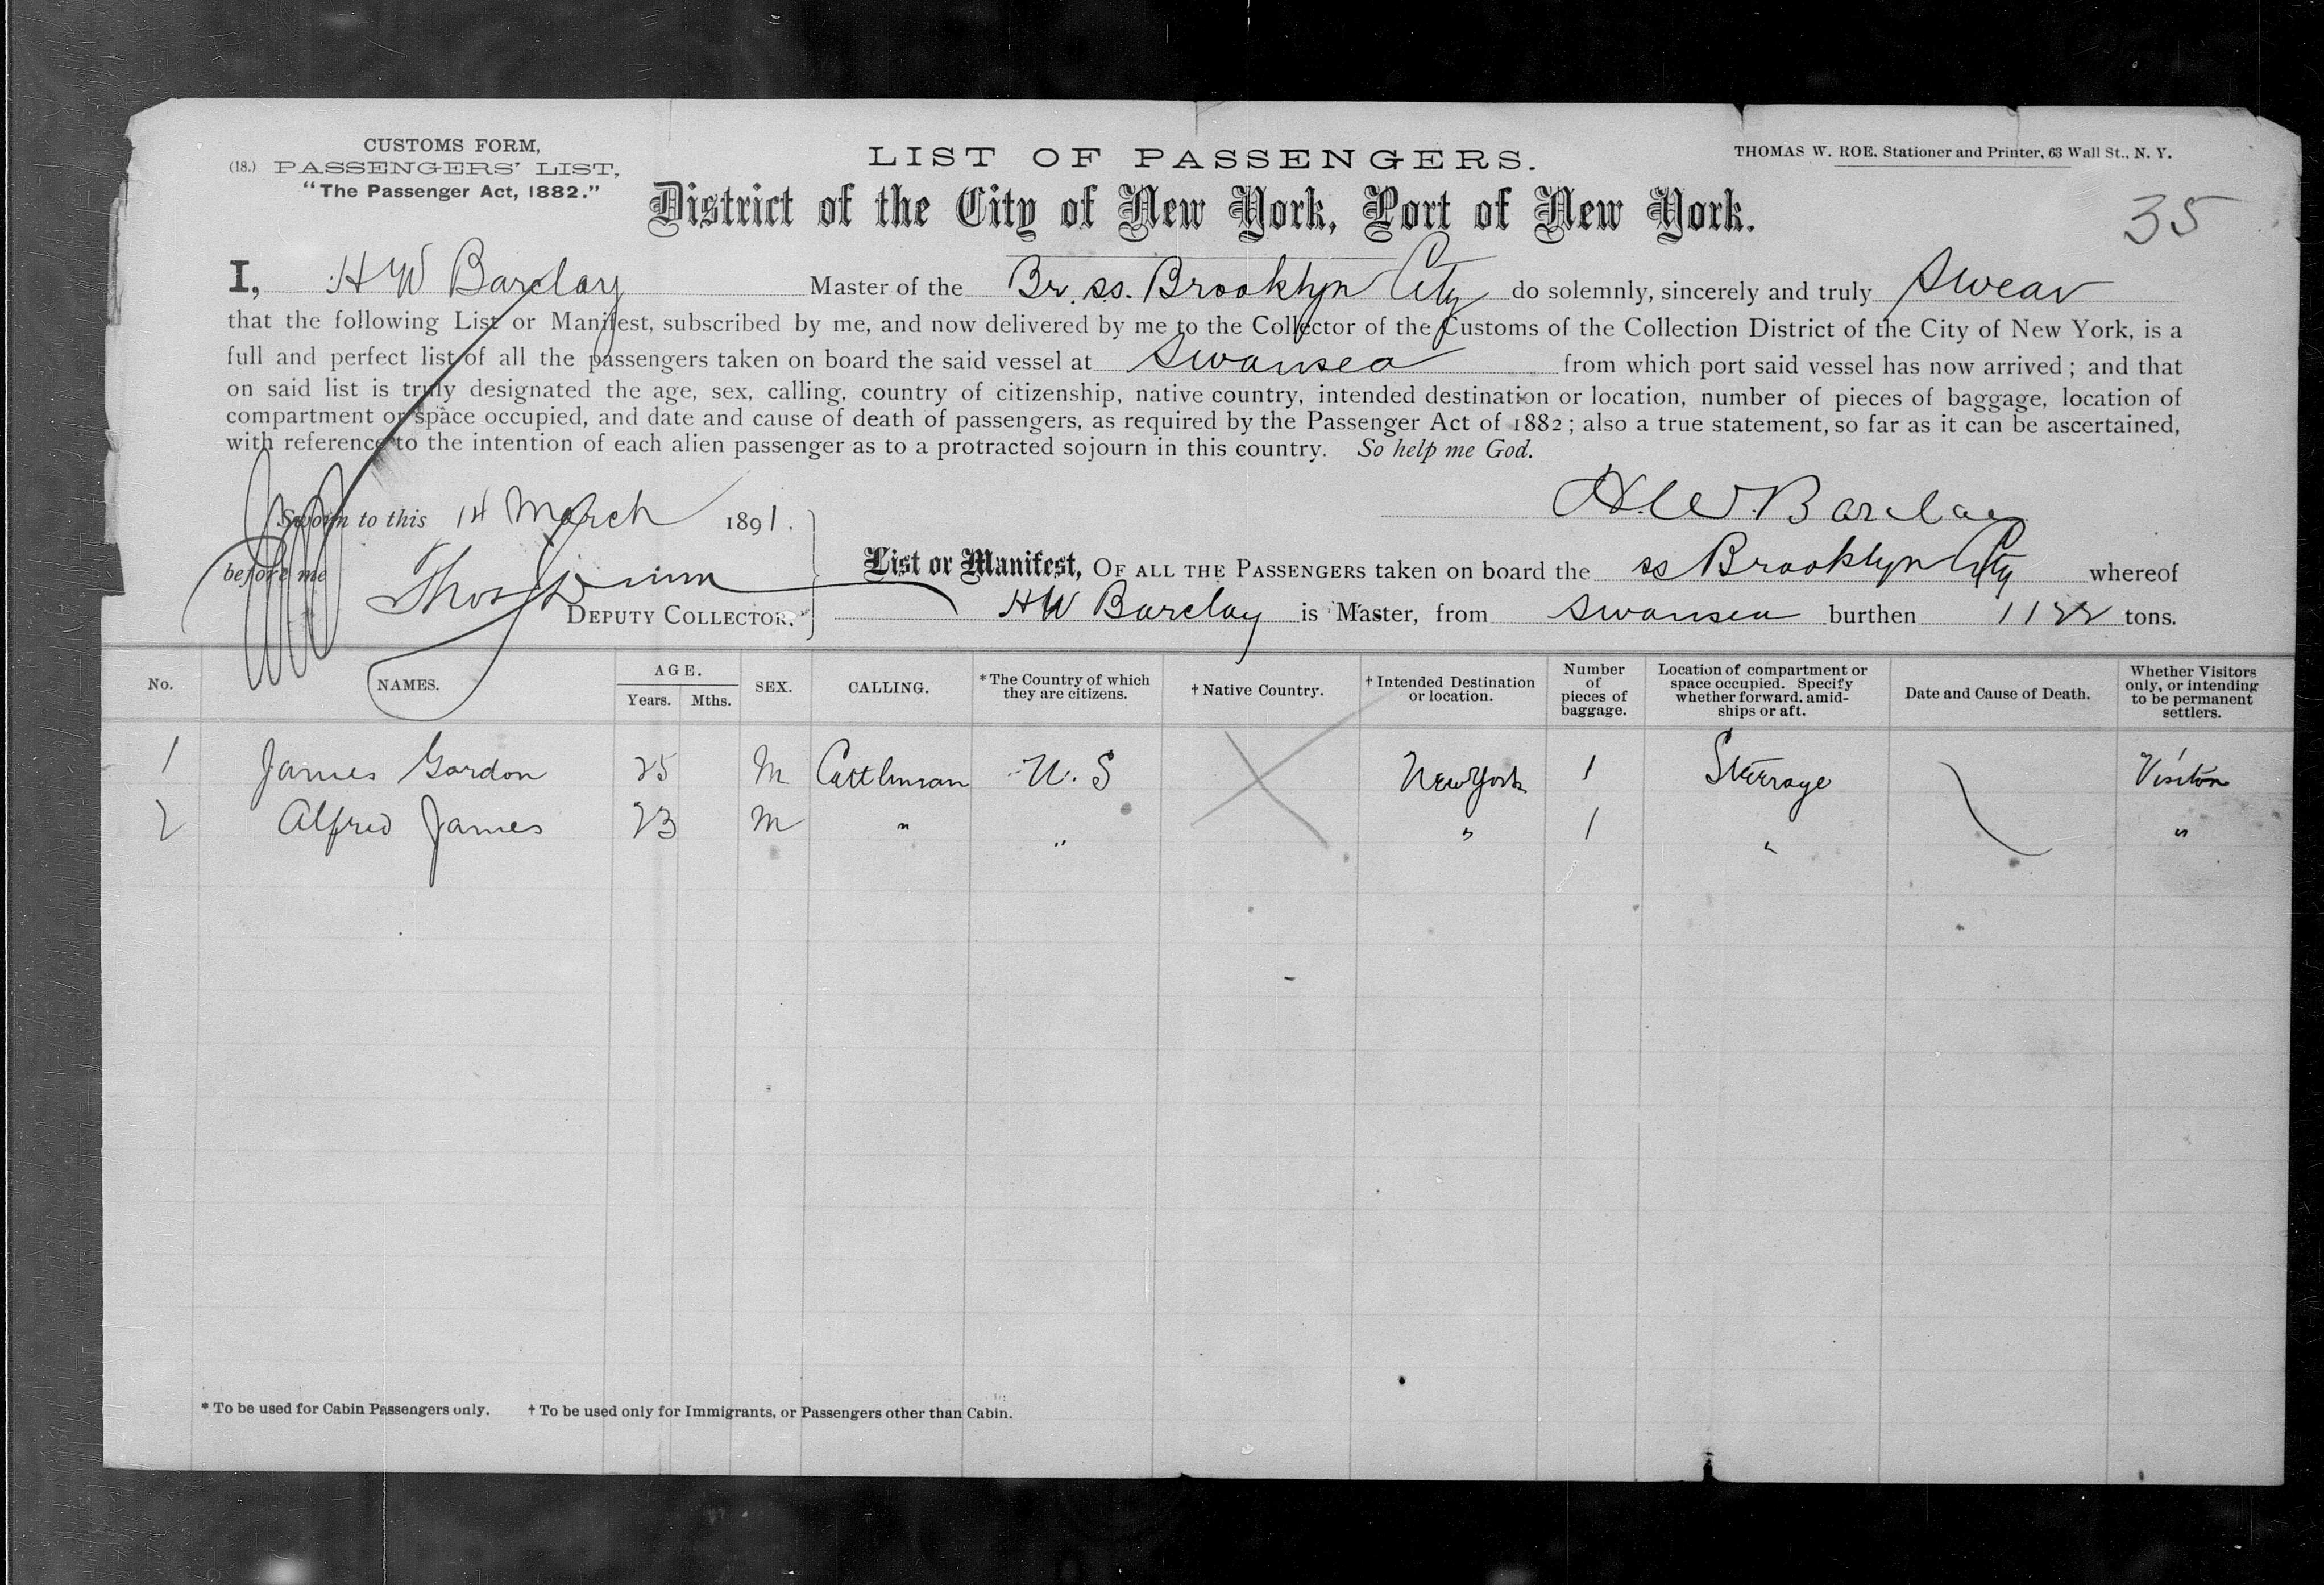 CUSTOMS FORM,
(18.) PASSENGERS' LIST,
"The Passenger Act, 1882."
LIST OF PASSENGERS.
THOMAS W. ROE, Stationer and Printer, 63 Wall St., N. Y.
District of the City of New York, Port of New York.
35
I, H W Barclay Master of the Br. ss. Brooklyn City do solemnly, sincerely and truly Swear
that the following List or Manifest, subscribed by me, and now delivered by me to the Collector of the Customs of the Collection District of the City of New York, is a
full and perfect list of all the passengers taken on board the said vessel at Swansea from which port said vessel has now arrived; and that
on said list is truly designated the age, sex, calling, country of citizenship, native country, intended destination or location, number of pieces of baggage, location of
compartment or space occupied, and date and cause of death of passengers, as required by the Passenger Act of 1882; also a true statement, so far as it can be ascertained,
with reference to the intention of each alien passenger as to a protracted sojourn in this country. So help me God.
H. W. Barclay
Sworn to this 14 March 1891.
before me Thos
DEPUTY COLLECTOR.
List or Manifest, OF ALL THE PASSENGERS taken on board the ss Brooklyn City whereof
H W Barclay is Master, from Swansea burthen 1122 tons.
No. NAMES. AGE. Years. Mths. SEX. CALLING. *The Country of which they are citizens. † Native Country. † Intended Destination or location. Number of pieces of baggage. Location of compartment or space occupied. Specify whether forward, amidships or aft. Date and Cause of Death. Whether Visitors only, or intending to be permanent settlers.
1 James Gordon 25 M Cattleman U. S New York 1 Steerage Visitor
2 Alfred James 23 M " " " 1 " "
* To be used for Cabin Passengers only. † To be used only for Immigrants, or Passengers other than Cabin.